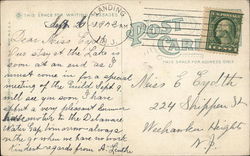 THIS SPACE FOR WRITING MESSAGES
LANDING
POST
CARD
THIS SPACE FOR ADDRESS ONLY
Sept. 2, 1912
Dear Miss Eydth
Our stay at the Lake is
soon at an end as I
must come in for a special
meeting of the Guild Sept 9.
will see you soon. I have
had a very pleasant
motor to the Delaware
Water Gap
go when we have no work
Kindest regards from A.
Miss E Eydth
224 Shippen St
Weehawken Height
N.J.